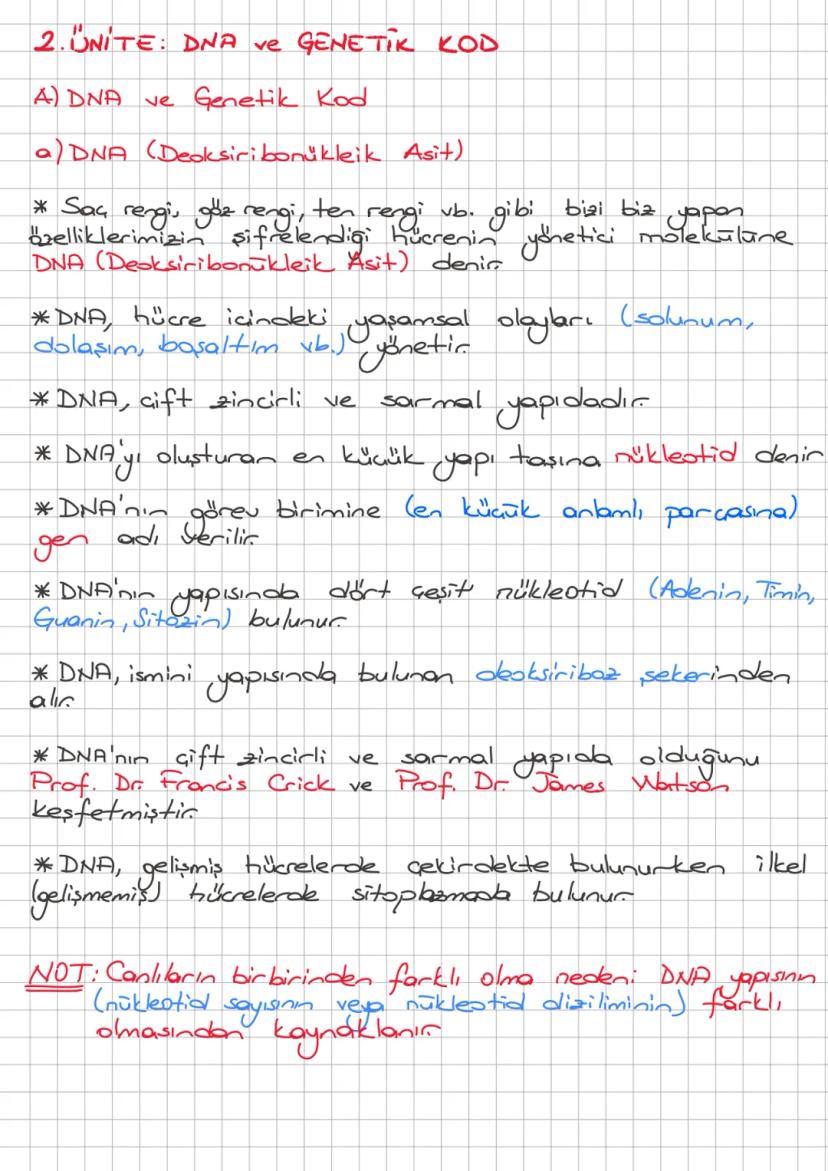 2. ÜNİTE: DNA ve GENETİK KOD
A) DNA ve Genetik Kod
a) DNA (Deoksiribonükleik Asit)
* Saç rengi, göz rengi, ten rengi vb. gibi bizi biz yapan
özelliklerimizin şifrelendiği hücrenin yönetici molekülüne
DNA (Deoksiribonükleik Asit) denir.
* DNA, hücre içindeki yaşamsal olayları (solunum,
dolaşım, boşaltım vb.) yönetir.
* DNA, çift zincirli ve sarmal yapıdadır.
* DNA'yı oluşturan en küçük yapı taşına nükleotid denir
* DNA'nın görev birimine (en küçük anlamlı parçasına)
gen adı verilir.
* DNA'nın yapısında dört çeşit nükleotid (Adenin, Timin,
Guanin, Sitozin) bulunur.
* DNA, ismini yapısında bulunan deoksiriboz şekerinden
alır.
* DNA'nın çift zincirli ve sarmal yapıda olduğunu
Prof. Dr. Francis Crick ve Prof. Dr. James Watson
keşfetmiştir.
* DNA, gelişmiş hücrelerde çekirdekte bulunurken ilkel
(gelişmemiş) hücrelerde sitoplazmada bulunur.
NOT: Canlıların birbirinden farklı olma nedeni DNA yapısının
(nükleotid sayısının veya nükleotid diziliminin) farklı
olmasından kaynaklanır.